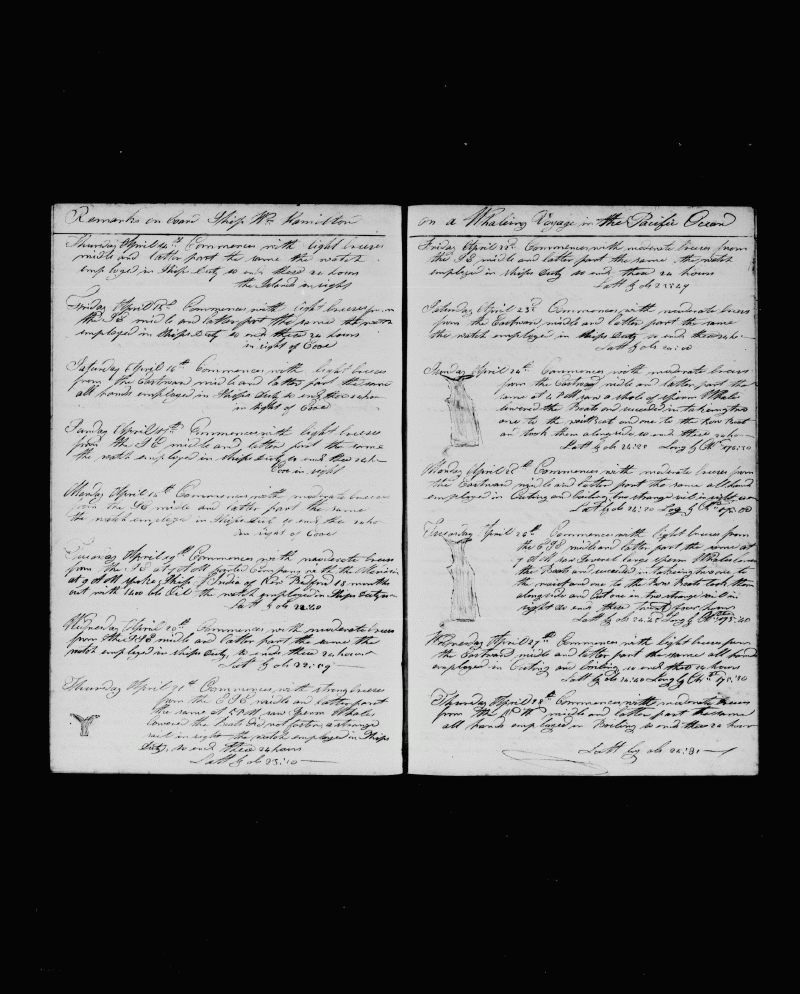 Remarks on board Ship Wm Hamilton
Thursday April 14th Commences with light breeses
midle and latter part the same the watch
employed in Ships duty so ends these 24 hours
the Island in sight
Friday April 15th Commences with light breeses from
the SE midle and latter part the same the watch
employed in Ships duty so ends these 24 hours
in sight of
Saturday April 16th Commences with light breeses
from the Eastward midle and latter part the same
all hands employed in Ships duty so ends these 24 ho
in sight of
Sunday April 17th Commences with light breeses
from the SE midle and latter part the same
the watch employed in Ships duty so ends these 24 h
in sight
Monday April 18th Commences with moderate breeses
from the SE midle and latter part the same
the watch employed in Ships duty so ends these 24 ho
in sight of
Tuesday April 19th Commences with moderate breeses
from the SE at 7 A M parted Company with the
at 9 A M spoke Ship India of New Bedford 18 months
out with 1400 bbl Oil the watch employed in Ships duty
Latt by ob 22:40
Wednesday April 20th Commences with moderate breeses
from the midle and latter part the same the
watch employed in ships duty so ends these 24 hours
Latt by ob 22:59
Thursday April 21st Commences with strong breeses
from the ESE midle and latter part
the same at 5 P M saw Sperm Whales
lowered the boats did not fasten a strange
sail in sight the watch employed in Ships
duty so ends these 24 hours
Latt by ob 23:10
on a Whaleing Voyage in the Pacific Ocean
Friday April 22d Commences with moderate breeses from
the SE midle and latter part the same the watch
employed in ships duty so ends these 24 hours
Latt by ob 23:29
Saturday April 23d Commences with moderate breeses
from the Eastward midle and latter part the same
the watch employed in Ships duty so ends these 24 ho
Latt by ob 24:00
Sunday April 24th Commences with moderate breeses
from the Eastward midle and latter part the
same at P M saw a shole of Sperm Whales
lowered the Boats and suceeded in takeing two
one to the waist Boat and one to the bow Boat
and took them along side so ends these 24 ho
Latt by ob 24:20 Long by Ch
Monday April 25th Commences with moderate breeses from
the Eastward midle and latter part the same all hand
employed in Cuting and boiling two strange sail in sight
Latt by ob 24:20 Long by Ch
Tuesday April 26th Commences with light breeses from
the ESE midle and latter part the same at
7 A M saw Several large Sperm Whales lowered
the Boats and suceeded in takeing two one to
the waist and one to the bow Boats took them
along side and Cut one in two strange sail in
sight so ends these twenty four hours
Latt by ob 24:25 Long by Ch
Wednesday April 27th Commences with light breeses from
the Eastward midle and latter part the same all hands
employed in Cuting and boiling so ends these 24 hours
Latt by ob 24:40 Long by Ch
Thursday April 28th Commences with moderate breeses
from the midle and latter part the same
all hands employed in Boiling so ends these 24 hour
Latt by ob 24:31